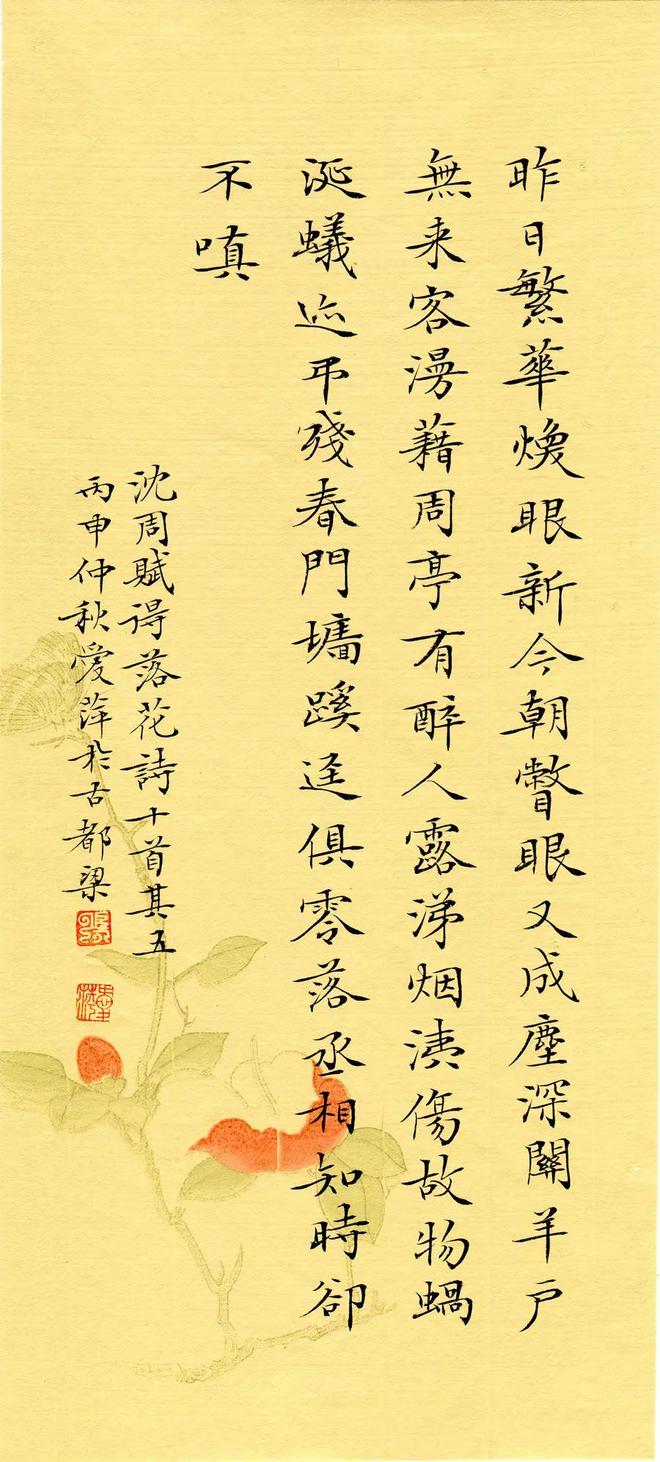 昨日繁華煥眼新今朝瞥眼又成塵深關羊户
無来客漫藉周亭有醉人露涕烟洟傷故物蝸
涎蟻迹吊殘春門墻蹊逕俱零落丞相知時卻
不嗔
沈周賦得落花詩十首其五
丙申仲秋愛萍於古都梁